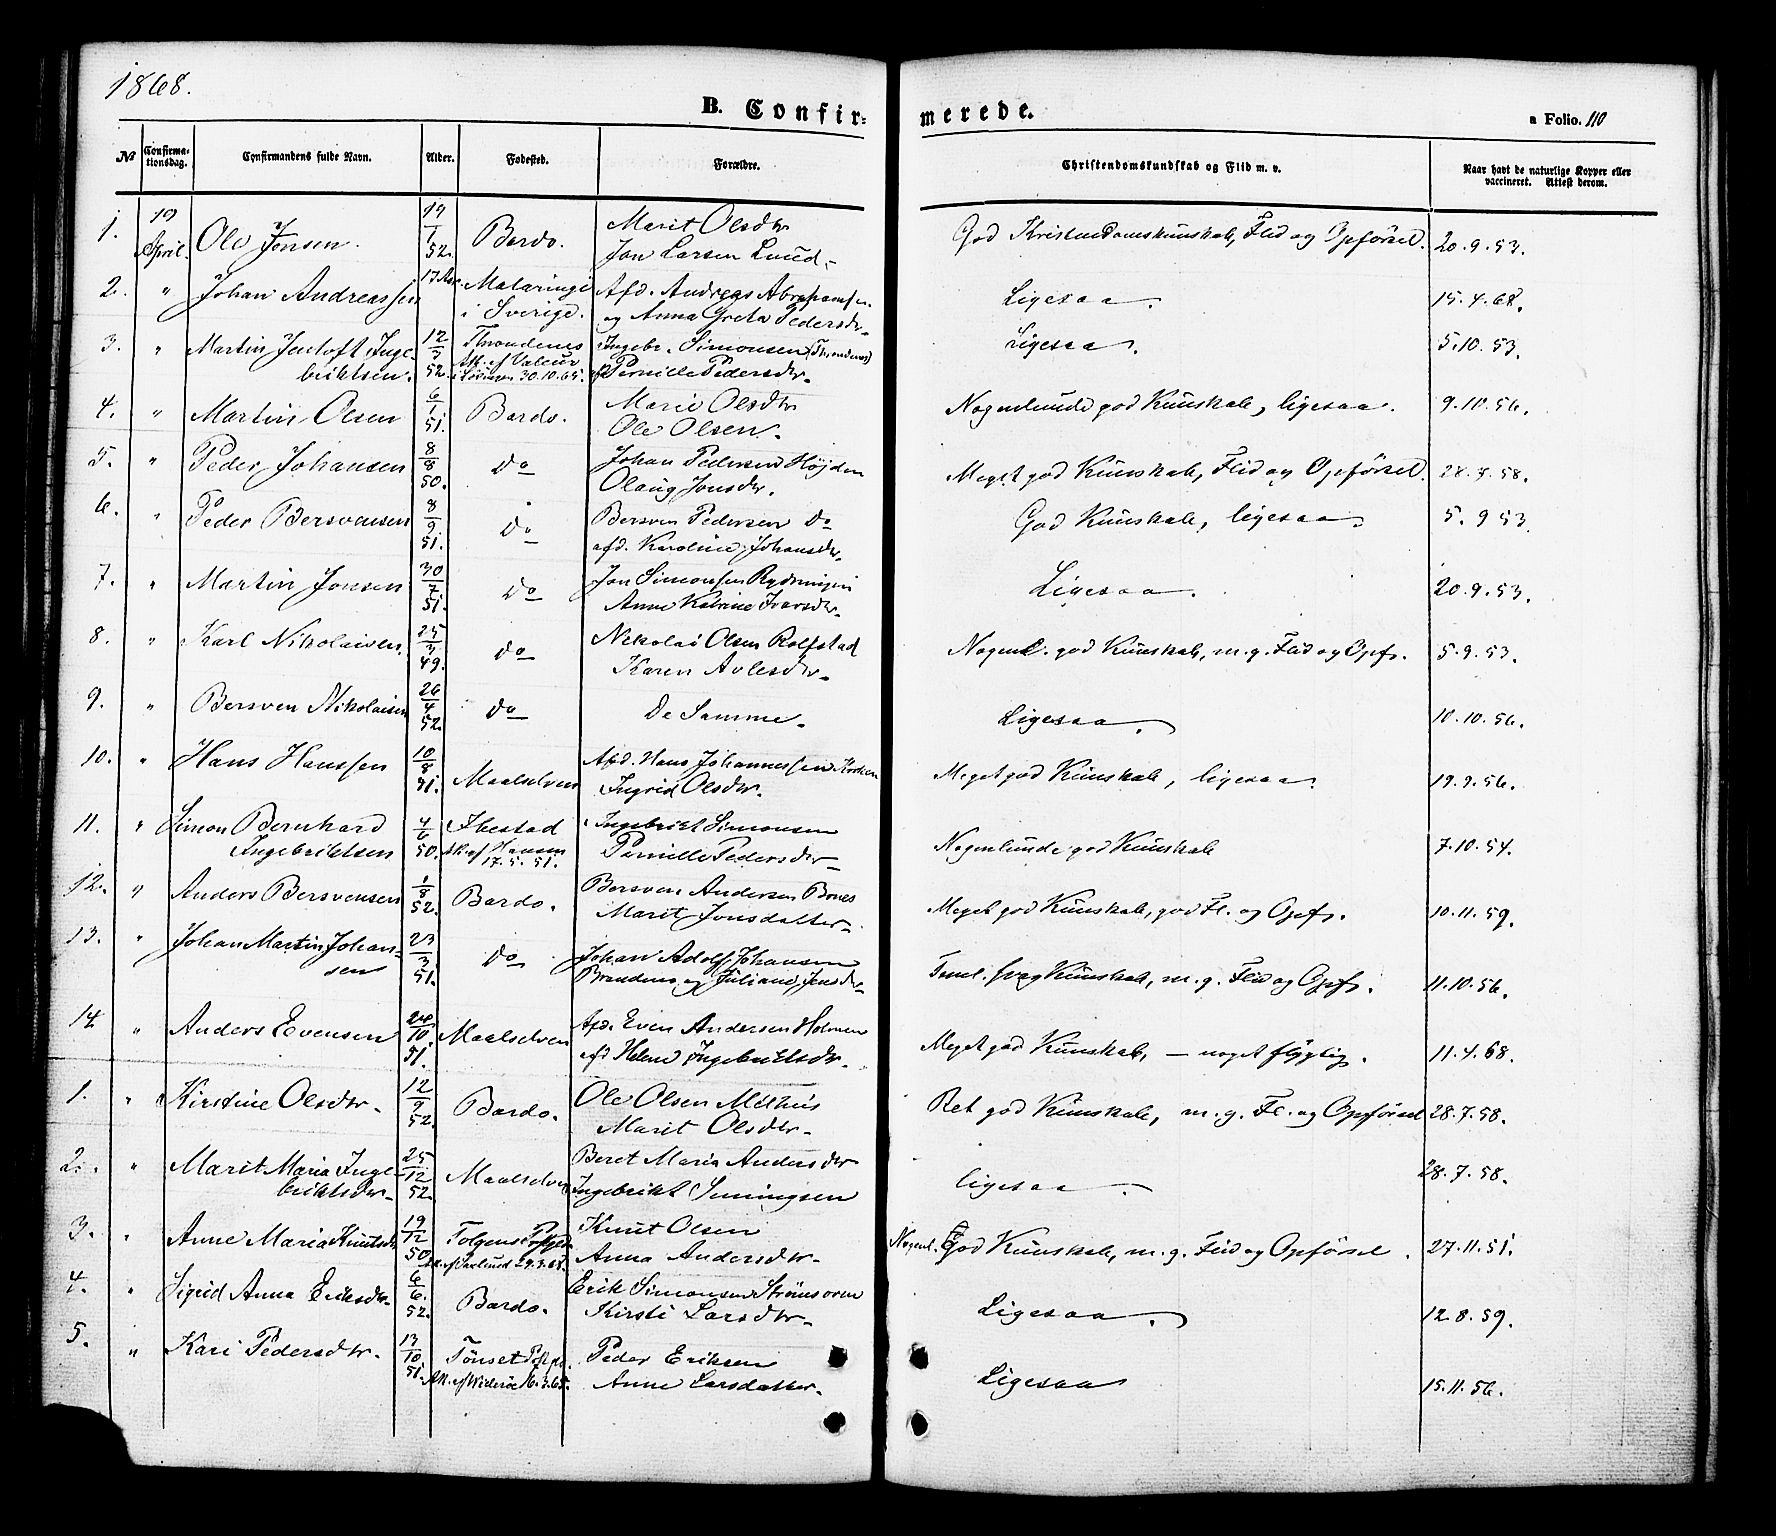 1868.
B. Confirmerede.
a Folio. 110
№ Confirmationsdag. Confirmandens fulde Navn. Alder. Fødested. Forældre. Christendomskundskab og Flid m. v. Naar havt de naturlige Kopper eller vaccineret. Attest derom.
1. 19 April. Ole Jonsen. 19/1 52. Bardo. Marit Olsdtr God Kristendomskunskab, Flid og Opførsel. 20.9.53.
Jon Larsen Lund.
2. " Johan Andreassen 17 Aar. Mataringi Afd. Andreas Abrahamsen Ligesaa. 15.4.68.
i Sverige. og Anna Greta Pedersdr.
3. " Martin Jentoft Inge- 12/3 52. Throndenes Ingebr. Simonsen (Throndenes) Ligesaa. 5.10.53.
briktsen. 30.10.65. Pernille Pedersdr.
4. " Martin Olsen 6/1 51. Bardo. Marie Olsdtr Nogenlunde god Kunskab, ligesaa. 9.10.56.
Ole Olsen.
5. " Peder Johansen 8/8 50. Do Johan Pedersen Højden Meget god Kunskab, Flid og Opførsel. 28.7.58.
Olaug Jonsdr.
6. " Peder Bersvensen 8/9 51. Do Bersven Pedersen Do God Kunskab, ligesaa. 5.9 53
afd. Karoline Johansdr.
7. " Martin Jonsen 30/7 51. Do Jon Simonsen Rydningen Ligesaa. 20.9.53.
Anne Katrine Iversdr.
8. " Karl Nikolaisen. 25/3 49. Do Nikolai Olsen Rolfstad Nogenl. god Kunskab, m.g. Flid og Opf. 5.9.53.
Karen Avlesdtr.
9. " Bersven Nikolaisen 26/4 52. Do De Samme. Ligesaa. 10.10.56.
10. " Hans Hanssen 10/8 51. Maalselven Afd. Hans Johannessen Meget god Kunskab, ligesaa. 19.9.56.
Ingrid Olsdtr.
11. " Simon Bernhard 4/6 50. Ibestad Ingebrikt Simonsen Nogenlunde god Kunskab 7.10.54.
Ingebriktsen 17.5.51. Pernille Pedersdtr
12. " Anders Bersvensen 1/8 52. Bardo. Bersven Andersen Bones Meget god Kunskab, god Fl. og Opf. 10.11.59.
Marit Jonsdatter.
13. " Johan Martin Johan- 23/3 51. Do Johan Adolf Johansen Teml. svag Kunskab, m.g. Flid og Opf. 11.10.56.
sen og Juliane Jensdr.
14 " Anders Evensen 24/10 51. Maalselven Afd. Even Andersen Holmen Meget god Kunskab, – noget flygtig. 11.4.68.
afd Helene Ingebriktsdr.
1. " Kirstine Olsdtr. 12/9 52. Bardo. Ole Olsen Melhus Ret god Kunskab, m.g. Fl. og Opførsel 28.7.58.
Marit Olsdtr.
2. " Marit Maria Inge- 25/12 52. Maalselven Beret Maria Andersdtr ligesaa. 28.7.58.
briktsdtr. Ingebrikt Simingsen
3. " Anne Maria Knutsdr 19/12 50. Tolgens Knut Olsen Nogenl. God Kunskab, m.g. Flid og Opførsel. 27.11.51.
Anna Andersdtr.
4. " Sigrid Anna Eriksdtr. 6/6 52. Bardo. Erik Simonsen Strømsoren Ligesaa. 12.8.59.
Kirsti Larsdtr.
5. " Kari Pedersdtr. 13/10 51. Tønset Peder Eriksen Ligesaa 15.11.56.
Anne Larsdatter.